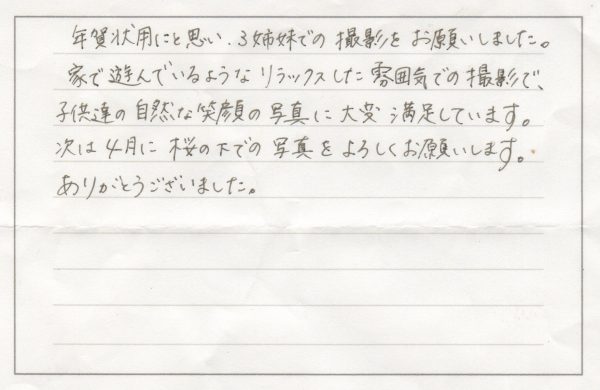 年賀状用にと思い、3姉妹での撮影をお願いしました。
家で遊んでいるようなリラックスした雰囲気での撮影で、
子供達の自然な笑顔の写真に大変満足しています。
次は4月に桜の下での写真をよろしくお願いします。
ありがとうございました。